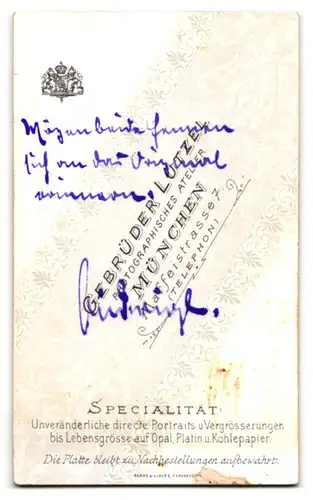 Mögen beide Herren
sich an das Original
erinnern.
GEBRÜDER LÜTZEL
PHOTOGRAPHISCHES ATELIER
MÜNCHEN
Maffeistrasse 7
(TELEPHON)
SPECIALITÄT:
Unveränderliche directe Portraits u. Vergrösserungen
bis Lebensgrösse auf Opal, Platin u. Kohlepapier.
Die Platte bleibt zu Nachbestellungen aufbewahrt.